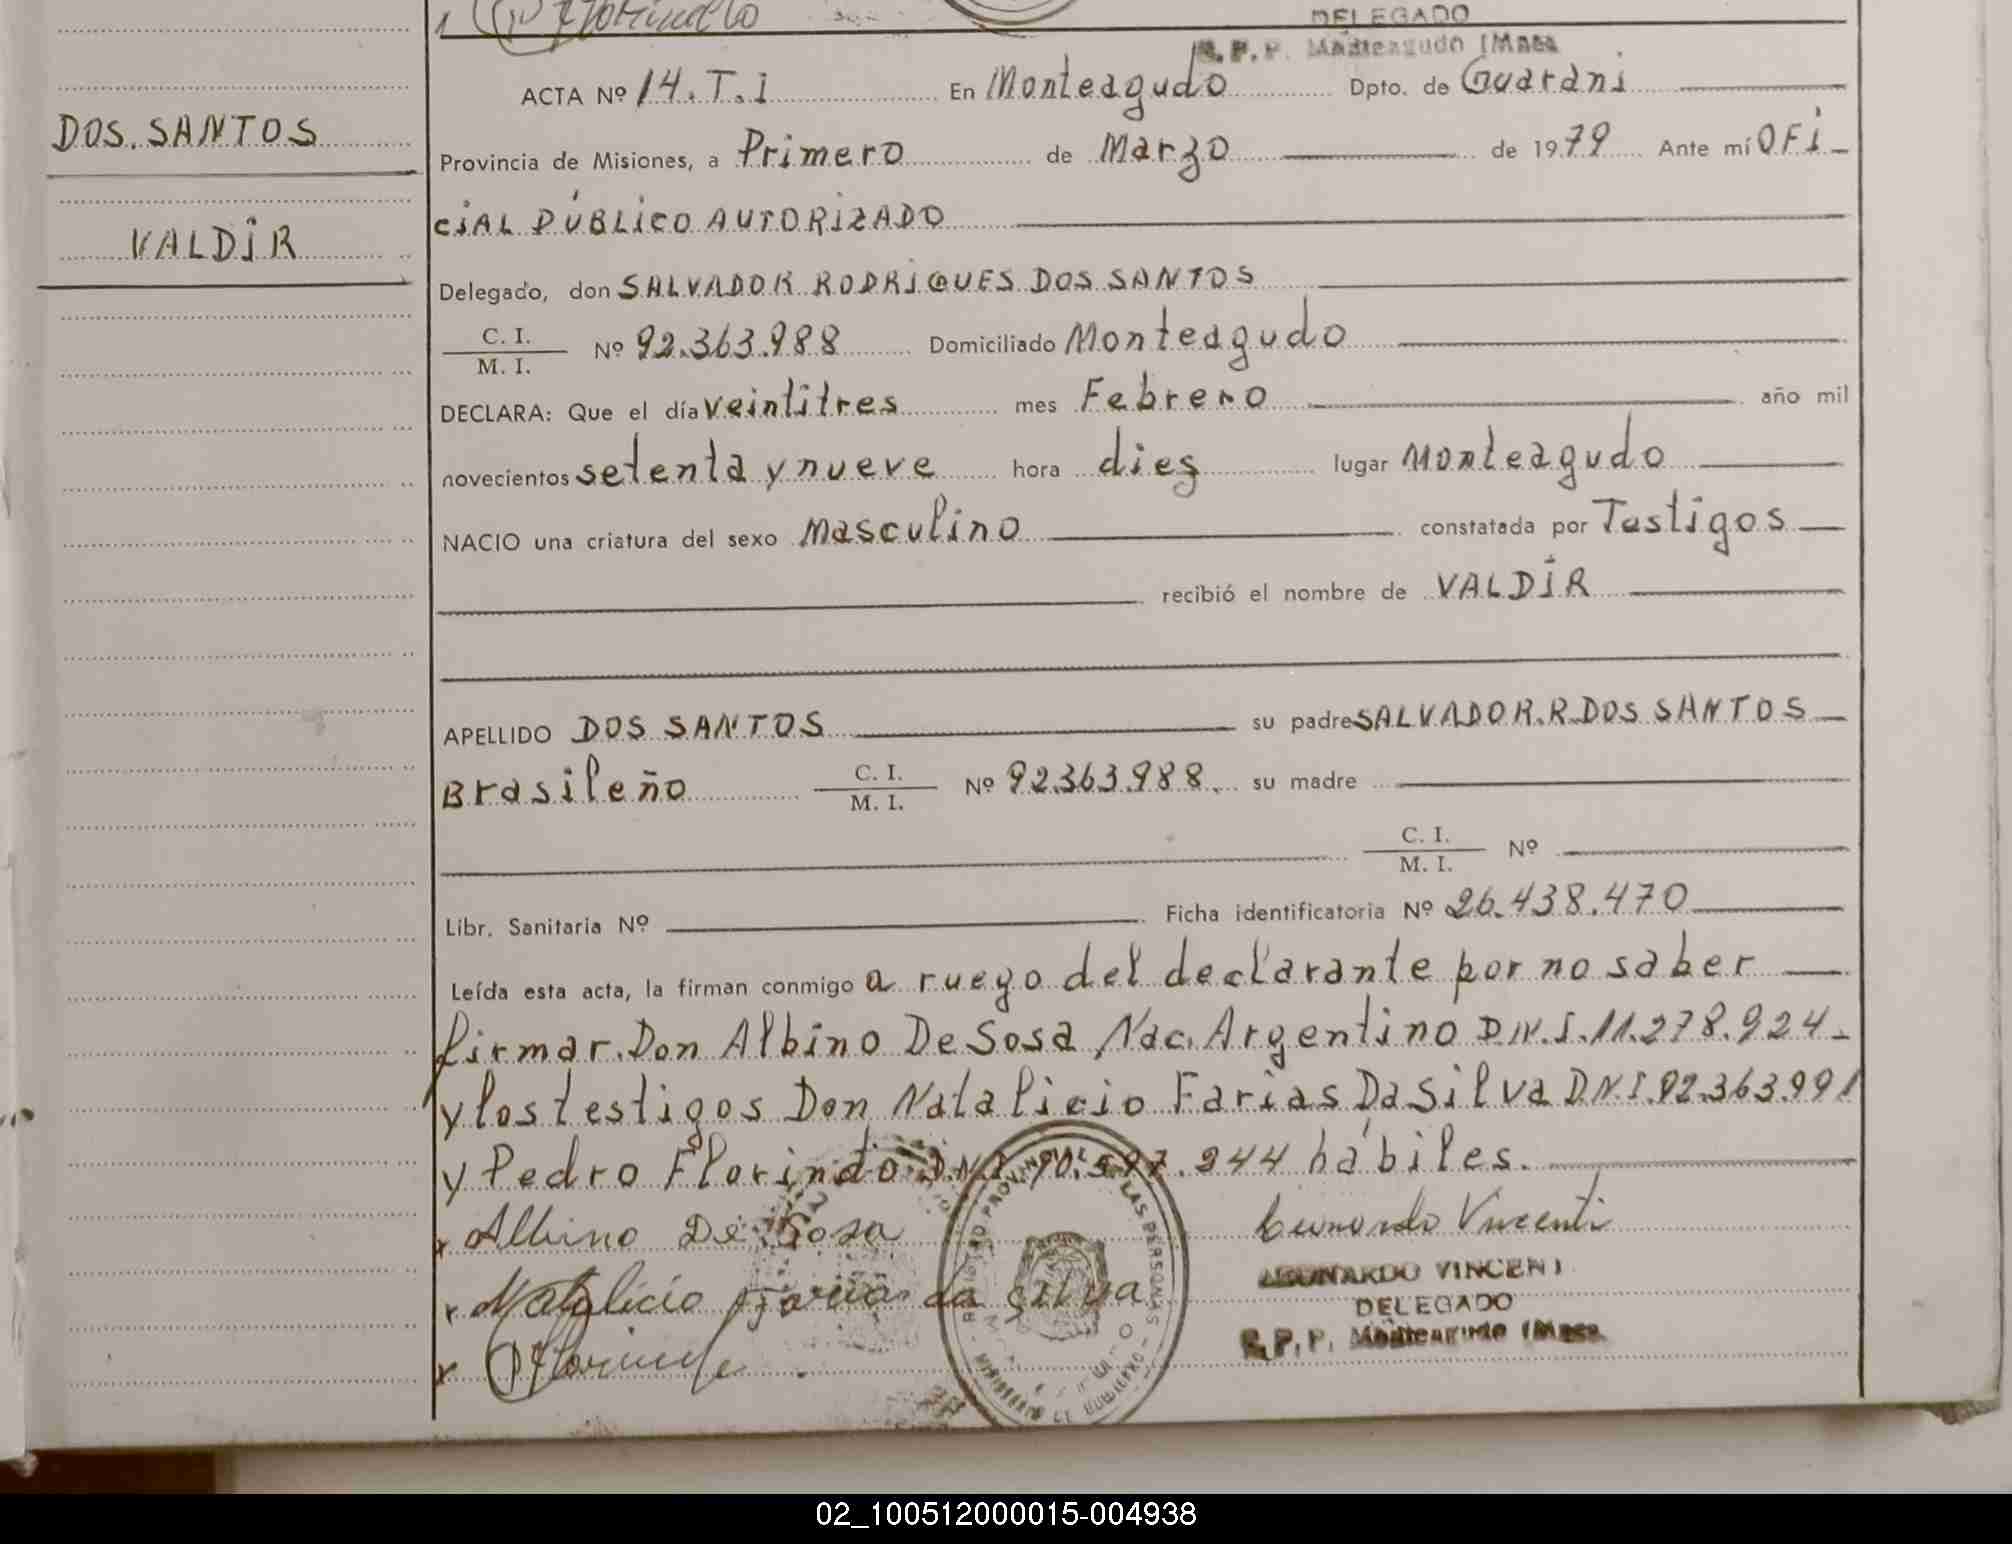 Florindo
DELEGADO
R.P.P. Monteagudo (Mnes.
DOS SANTOS
VALDIR
ACTA Nº 14.T.I En Monteagudo Dpto. de Guarani
Provincia de Misiones, a Primero de Marzo de 1979 Ante mí OFi
CiAL PÚBLiCO AUTORiZADO
Delegado, don SALVADOR RODRiGUES DOS SANTOS
C. I.
M. I. Nº 92.363.988 Domiciliado Monteagudo
DECLARA: Que el día veintitres mes Febrero año mil
novecientos setenta y nueve hora diez lugar Monteagudo
NACIO una criatura del sexo Masculino constatada por Testigos
recibió el nombre de VALDiR
APELLIDO DOS SANTOS su padre SALVADOR.R.DOS SANTOS
Brasileño C. I.
M. I. Nº 92.363.988. su madre
C. I.
M. I. Nº
Libr. Sanitaria Nº Ficha identificatoria Nº 26.438.470
Leída esta acta, la firman conmigo a ruego del declarante por no saber
firmar. Don Albino De Sosa Nac. Argentino D.N.I. 11.278.924
y los testigos Don Natalicio Farias Da Silva D.N.I. 92.363.991
y Pedro Florindo D.N.I. 244 hábiles.
x Albino De Sosa
x Natalicio Farias da Silva
x Florindo
Leonardo Vincenti
LEONARDO VINCENTI
DELEGADO
R.P.P. Monteagudo (Mnes.
REGISTRO PROVINCIAL DE LAS PERSONAS
MISIONES
02_100512000015-004938